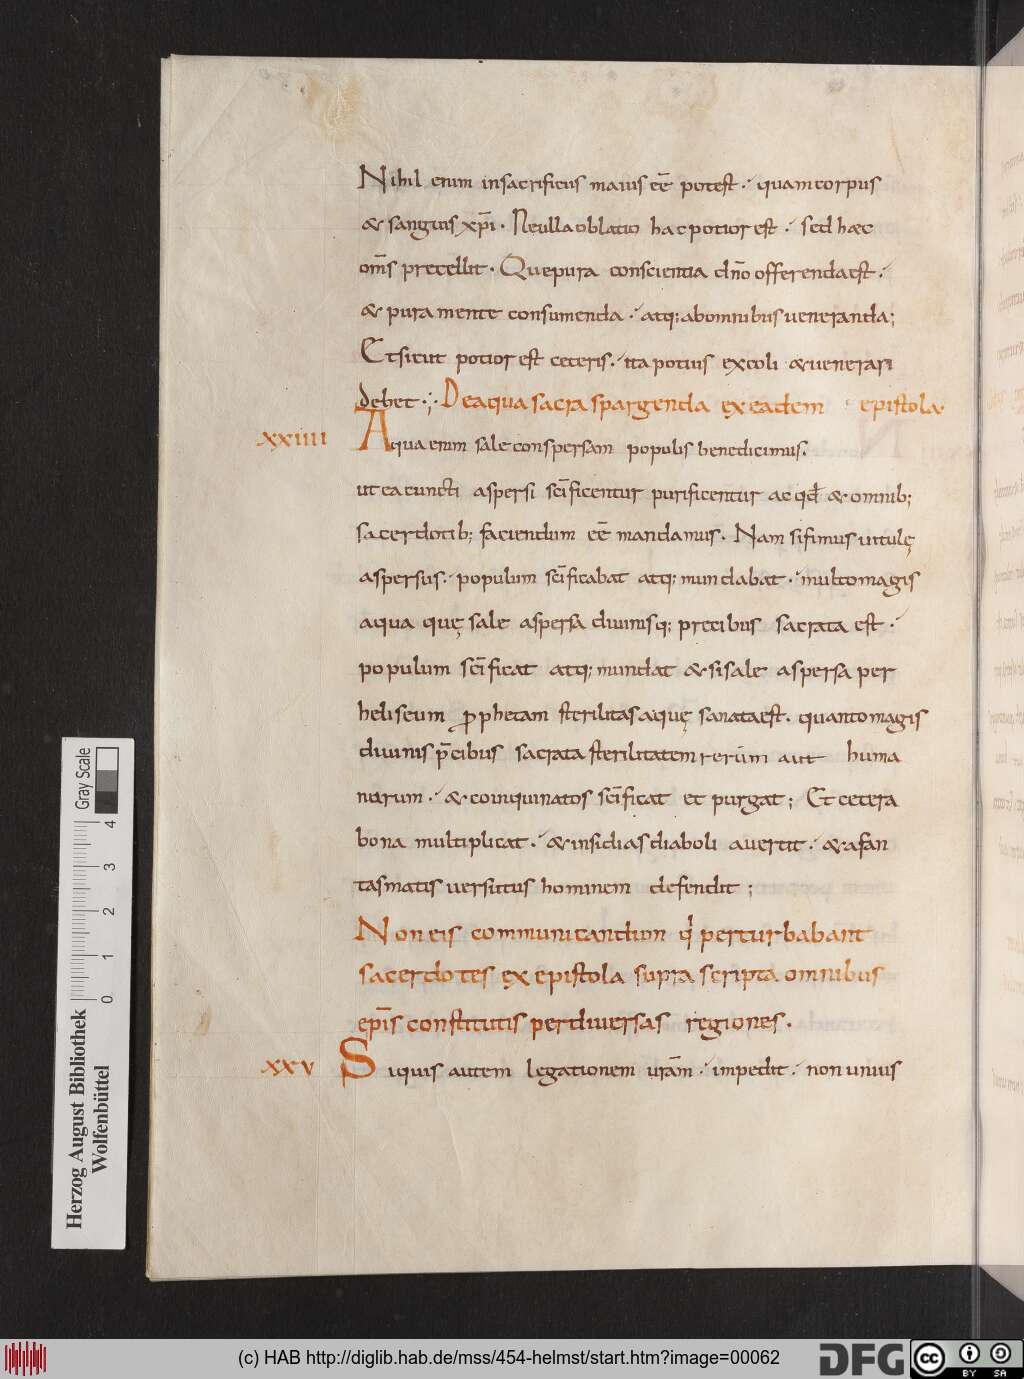 Nihil enim insacrificiis maius eē potest · quamcorpus
& sanguis xp̄i · Neullaoblatio hacpotiorest · sed haec
om̄s precellit · Quepura conscientia dn̄o offerendaest ·
& puramente consumenda · atq; abomnibusueneranda;
Etsicut potiorest ceteris · itapotius excoli &uenerari
debet · Deaquasacraspargenda exeadem epistola·
xxiiii Aquaenim saleconspersam populis benedicimus.
uteacuncti aspersi sc̄ificentur purificentur acqd̄ &omnib;
sacerdotib; faciendum eē mandamus. Nam sifimusuitulę
aspersus · populum sc̄ificabat atq; mundabat · multomagis
aqua quę sale aspersa diuinisq; precibus sacrata est ·
populum sc̄ificat atq; mundat &sisale aspersa per
heliseum ꝓphetam sterilitasaquę sanataest. quantomagis
diuinis p̄cibus sacrata sterilitatemrerum aut huma
narum · &coinquinatos sc̄ificat et purgat; Et cetera
bona multiplicat · &insidiasdiaboli auertit · &afan
tasmatis uersutus hominem defendit ;
Noneis communicandum q̇ perturbabant
sacerdotes exepistola suprascripta omnibus
ep̄is constitutis perdiuersas regiones.
xxv Siquis autem legationem ur̄am · impedit · nonunius
Gray Scale
4
3
2
1
0
Herzog August Bibliothek
Wolfenbüttel
(c) HAB http://diglib.hab.de/mss/454-helmst/start.htm?image=00062
DFG
cc BY SA